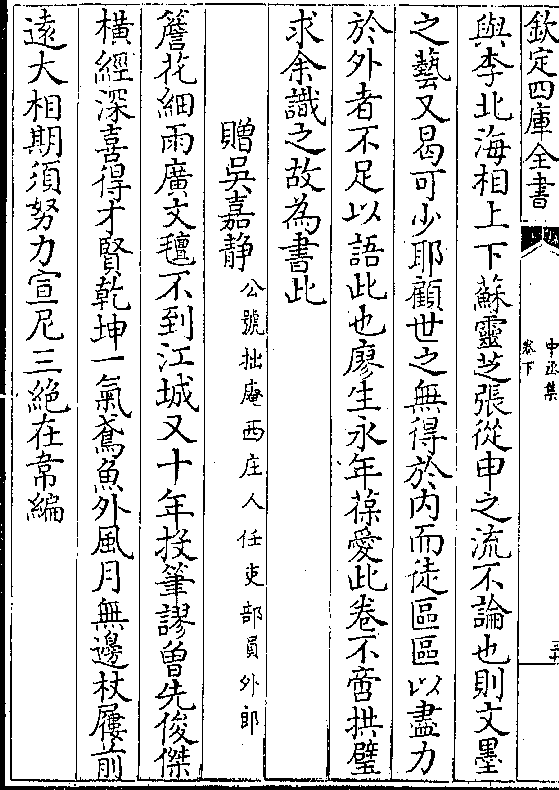 欽定四庫全書
中丞集
卷下
與李北海相上下蘇靈芝張從申之流不論也則文墨
之藝又曷可少耶顧世之無得於内而徒區區以盡力
於外者不足以語此也廖生永年葆愛此卷不啻拱璧
求余識之故為書此
贈吳嘉静公號拙庵西庄人任吏部員外郎
簷花細雨廣文氊不到江城又十年投筆謬曽先俊傑
橫經深喜得才賢乾坤一氣鳶魚外風月無邊杖屨前
逺大相期須努力宣尼三絶在韋編